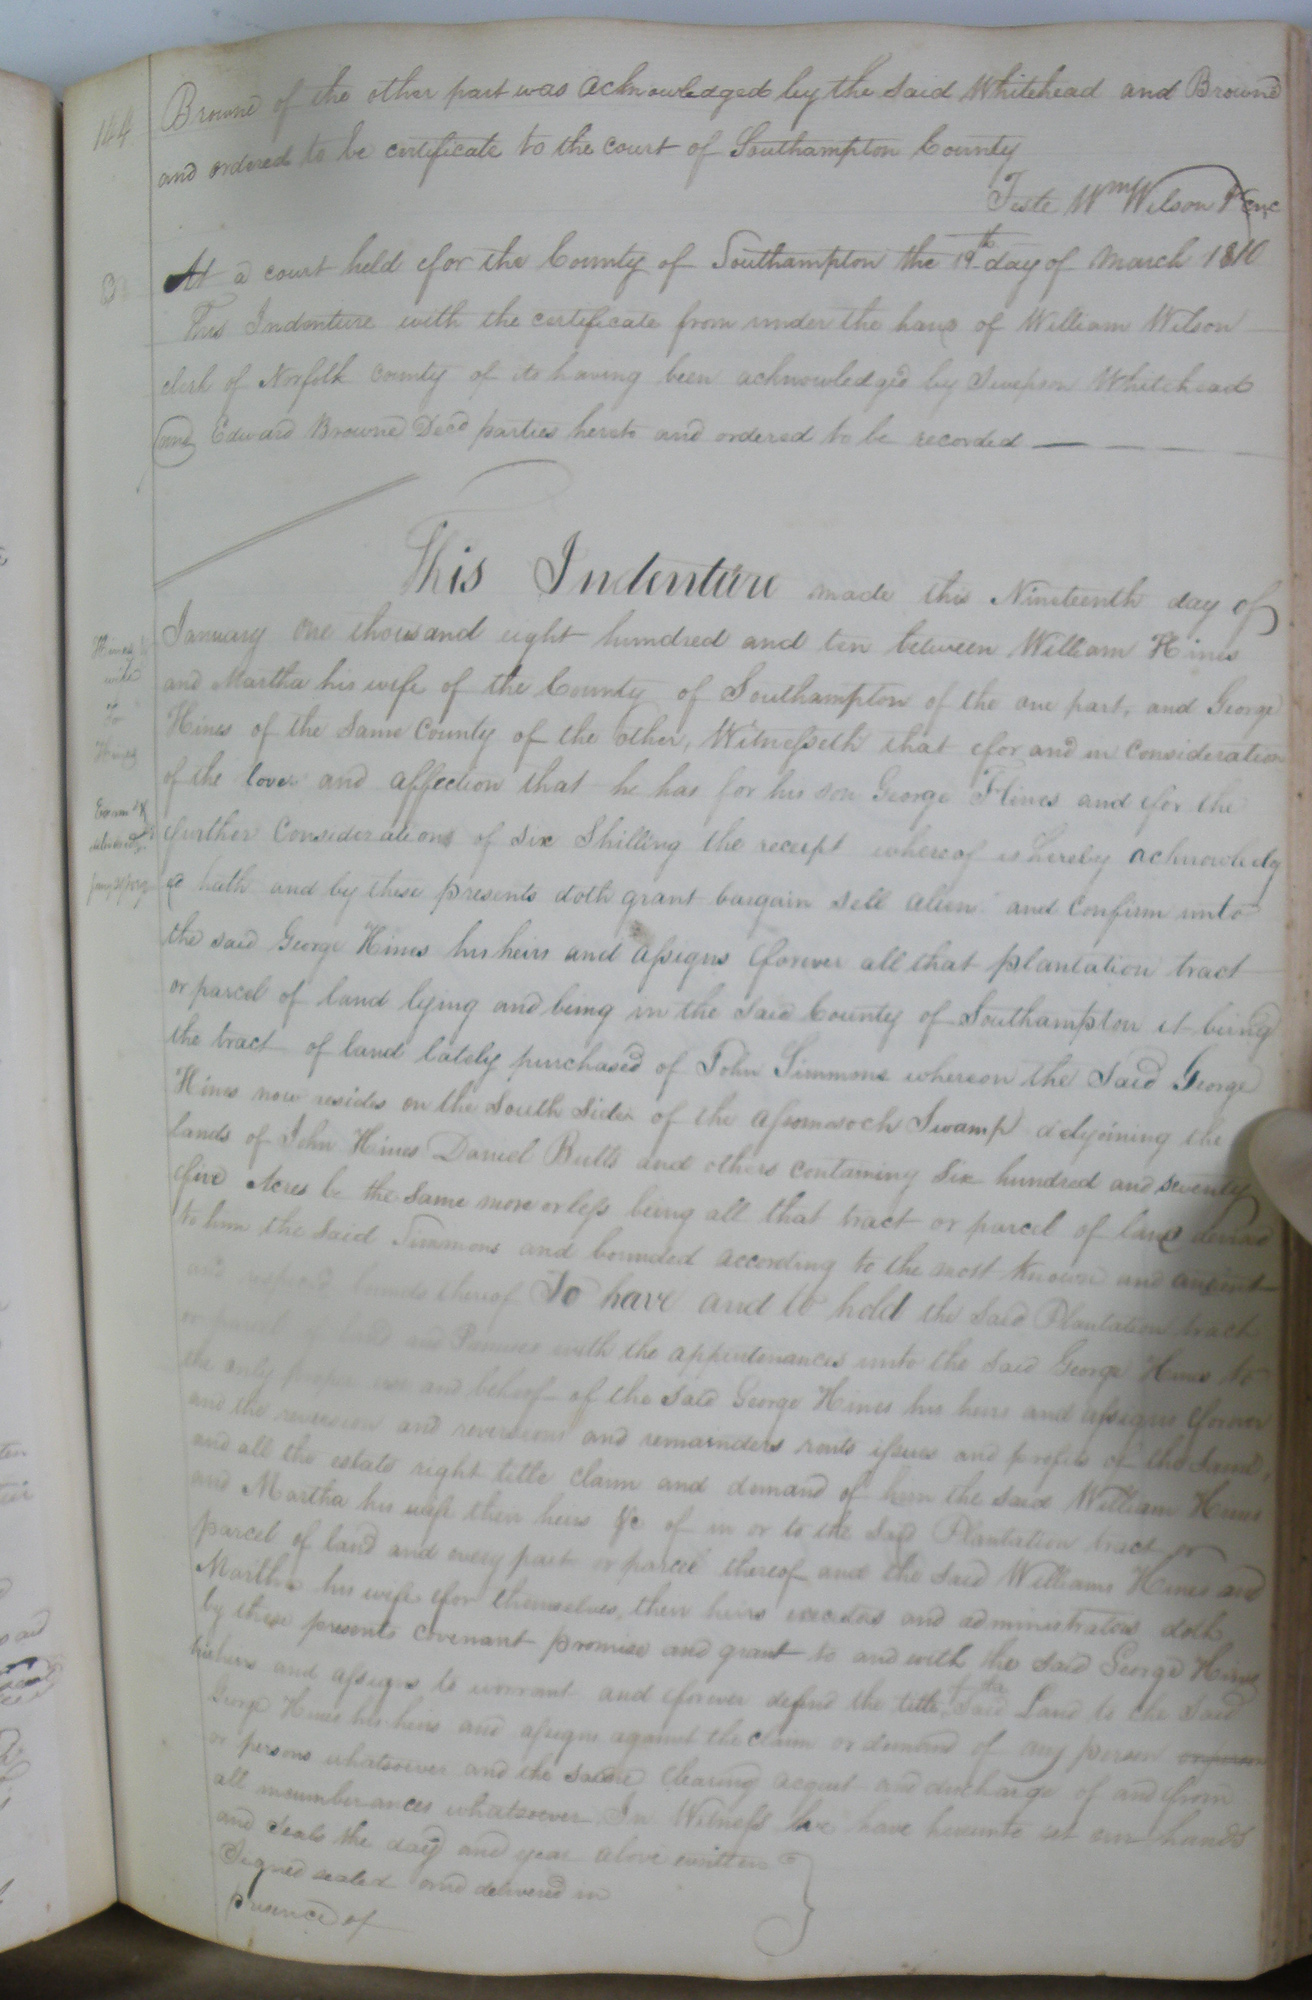 144
Browne of the other part was acknowledged by the said Whitehead and Browne
and ordered to be certificate to the court of Southampton County
Teste Wm Wilson
At a court held for the County of Southampton the 19th day of March 1810
This Indenture with the certificate from under the hand of William Wilson
clerk of Norfolk County of its having been acknowledged by Swepson Whitehead
and Edward Browne Decd parties hereto and ordered to be recorded
This Indenture made this Nineteenth day of
January one thousand eight hundred and ten between William Hines
and Martha his wife of the County of Southampton of the one part, and George
Hines of the Same County of the other, Witnesseth that for and in consideration
of the love and affection that he has for his son George Hines and for the
further Considerations of six Shilling the receipt whereof is hereby acknowledg
ed hath and by these presents doth grant bargain sell alien and confirm unto
the said George Hines his heirs and assigns forever all that plantation tract
or parcel of land lying and being in the said County of Southampton it being
the tract of land lately purchased of John Simmons whereon the said George
Hines now resides on the South Side of the Assomosock Swamp adjoining the
lands of John Hines Daniel Butts and others containing six hundred and seventy
five Acres be the same more or less being all that tract or parcel of land
to him the said Simmons and bounded according to the most known and ancient
and bounds thereof To have and to hold the said Plantation tract
or parcel of land and Premises with the appurtenances unto the said George Hines to
the only proper use and behoof of the said George Hines his heirs and assigns forever
and the reversion and reversions and remainders rents issues and profits of the
and all the estate right title claim and demand of him the said William Hines
and Martha his wife their heirs &c of in or to the said Plantation tract or
parcel of land and every part or parcel thereof and the said Williams Hines and
Martha his wife for themselves, their heirs executors and administrators doth
by these presents covenant promise and grant to and with the said George Hines
his heirs and assigns to warrant and forever defend the title, said Land to the said
George Hines his heirs and assigns against the claim or demand of any person
or persons whatsoever and the same clearing acquit and discharge of and from
all incumberances whatsoever In Witness we have hereunto set our hands
and seals the day and year above written
Signed sealed and delivered in
presence of
Hines &
wife
To
Hines